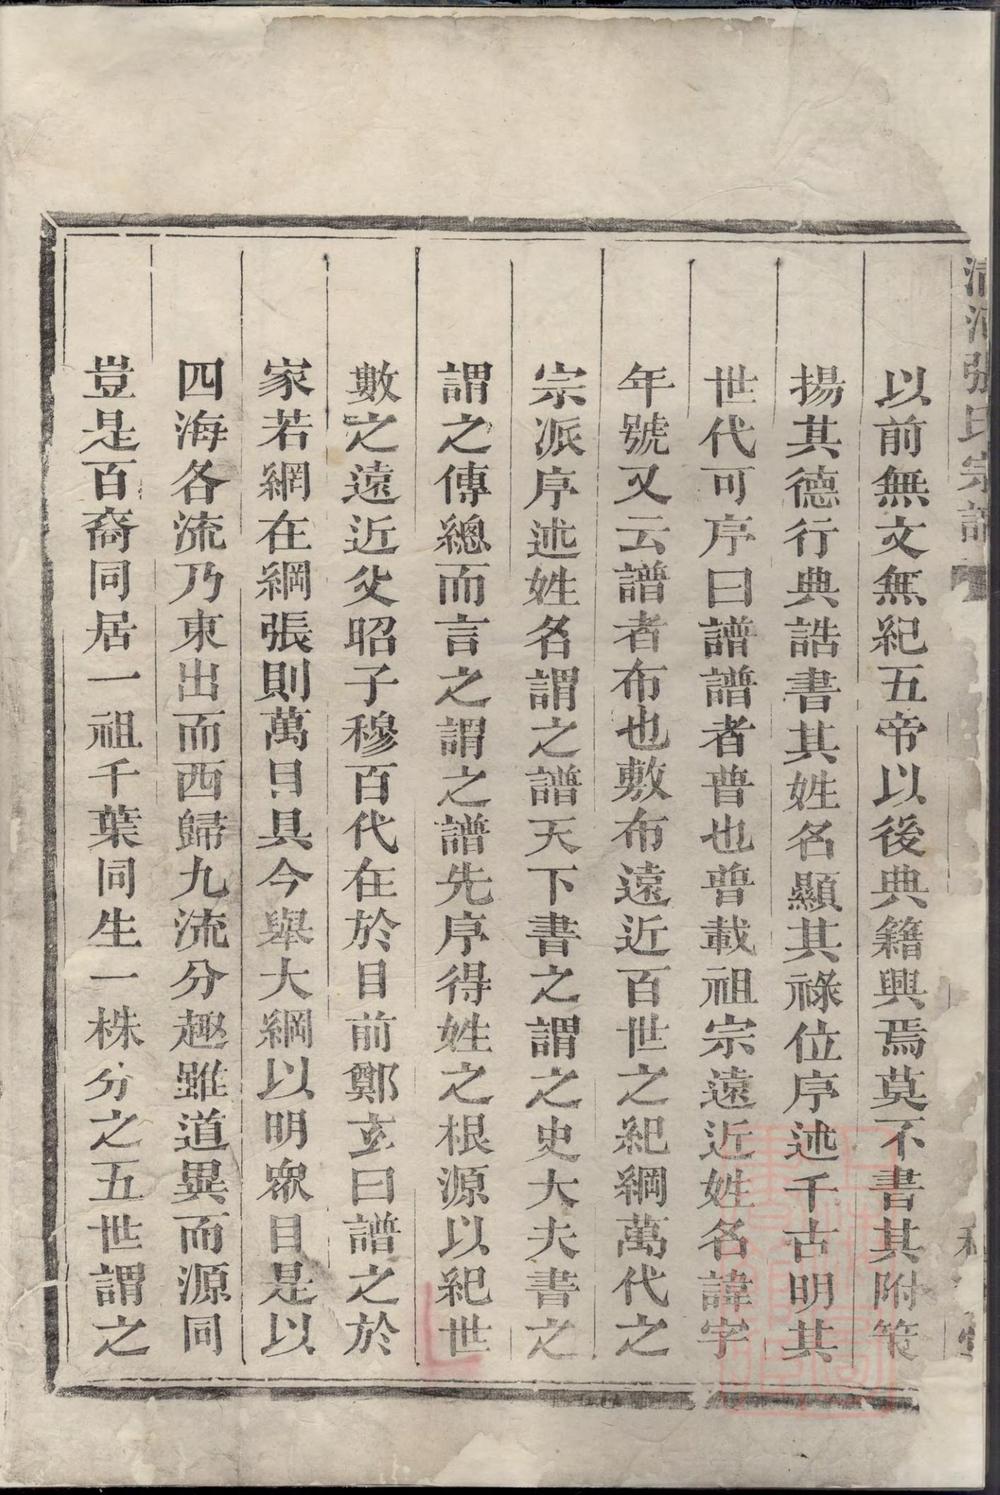 清河張氏宗譜
以前無文無紀五帝以後典籍興焉莫不書其附策
揚其德行典誥書其姓名顯其祿位序述千古明其
世代可序曰譜譜者普也普載祖宗遠近姓名諱字
年號又云譜者布也敷布遠近百世之紀綱萬代之
宗派序述姓名謂之譜天下書之謂之史大夫書之
謂之傳總而言之謂之譜先序得姓之根源以紀世
數之遠近父昭子穆百代在於目前鄭玄曰譜之於
家若網在綱張則萬目具今舉大綱以明眾目是以
四海各流乃東出而西歸九流分趣雖道異而源同
豈是百裔同居一祖千葉同生一株分之五世謂之